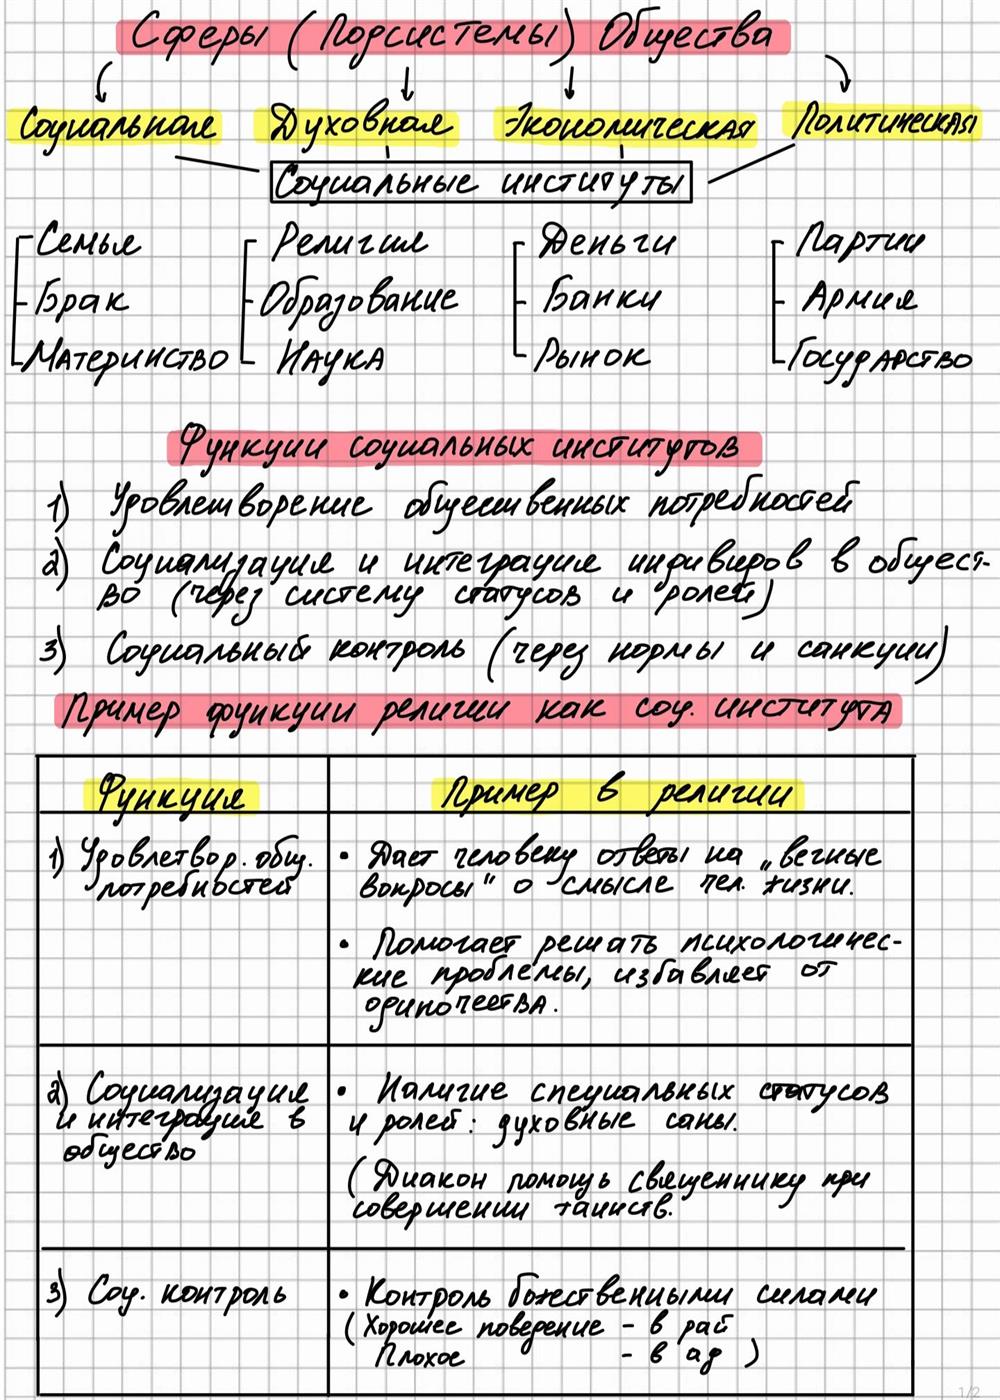 Сферы (Подсистемы) Общества
Социальная Духовная Экономическая Политическая
Социальные институты
Семья Религия Деньги Партии
Брак Образование Банки Армия
Материнство Наука Рынок Государство
Функции социальных институтов
1) Удовлетворение общественных потребностей
2) Социализация и интеграция индивидов в общест-
во (через систему статусов и ролей)
3) Социальный контроль (через нормы и санкции)
Пример функции религии как соц. института
Функция
Пример в религии
1) Удовлетвор. общ.
потребностей
• Дает человеку ответы на „вечные
вопросы" о смысле чел. жизни.
• Помогает решать психологичес-
кие проблемы, избавляет от
одиночества.
2) Социализация
и интеграция в
общество
• Наличие специальных статусов
и ролей: духовные саны.
(Диакон помощь священнику при
совершении таинств.
3) Соц. контроль
• Контроль божественными силами
(Хорошее поведение - в рай
Плохое - в ад)
1/2